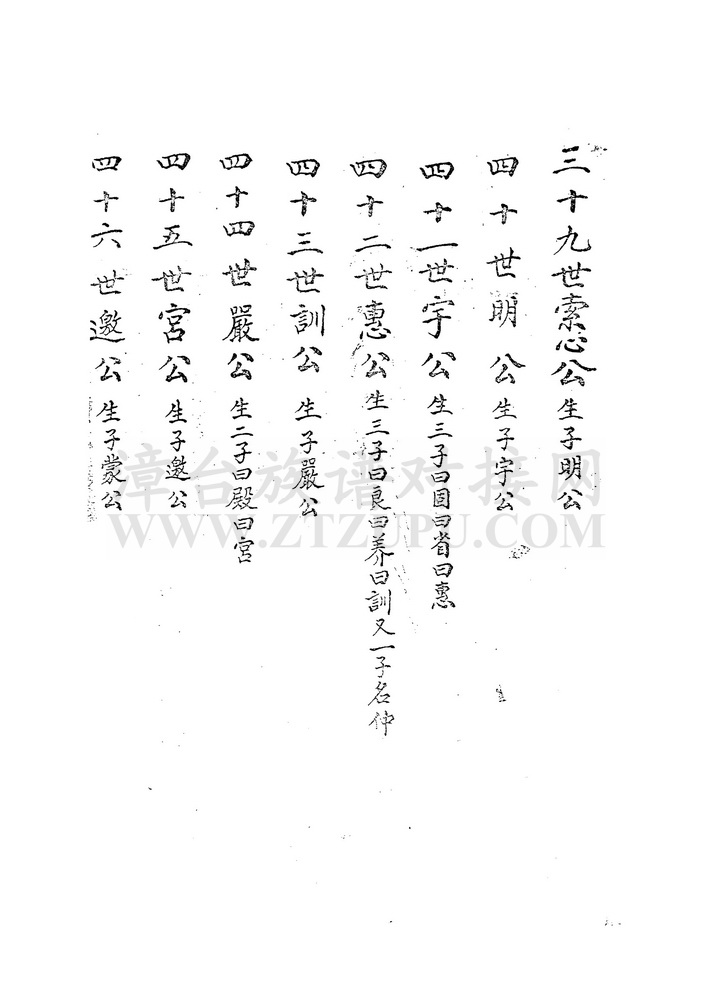 三十九世索心公生子明公
四十世明公生子宇公
四十一世宇公生三子曰固曰省曰惠
四十二世惠公生三子曰良曰养曰訓又一子名仲
四十三世訓公生子嚴公
四十四世嚴公生二子曰殿曰宮
四十五世宮公生子邀公
四十六世邀公生子蒙公
漳台族谱对接网
WWW.ZTZUPU.COM